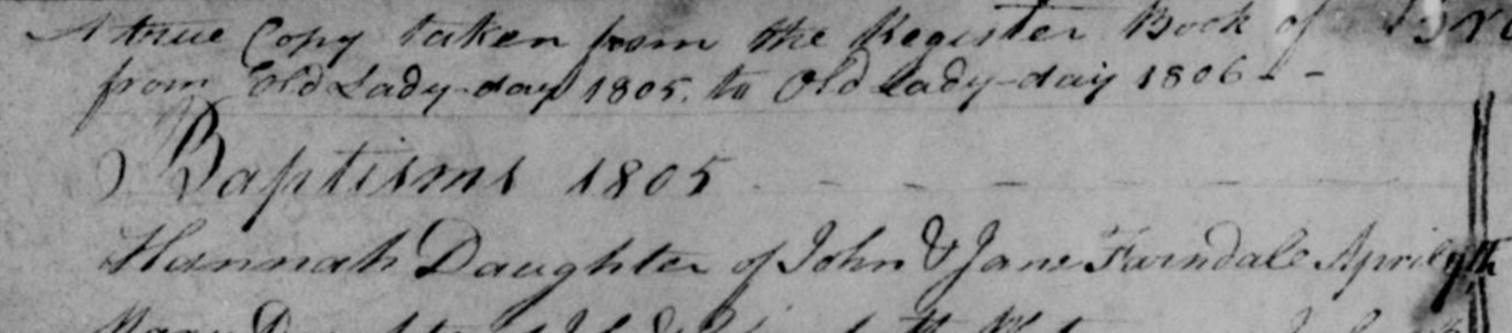 A true Copy taken from the Register Book of
from Old Lady-day 1805. to Old Lady-day 1806 - -
Baptisms 1805 - - - - - -
Hannah Daughter of John & Jane Farndale April
Mary Daughter of John & Elizabeth